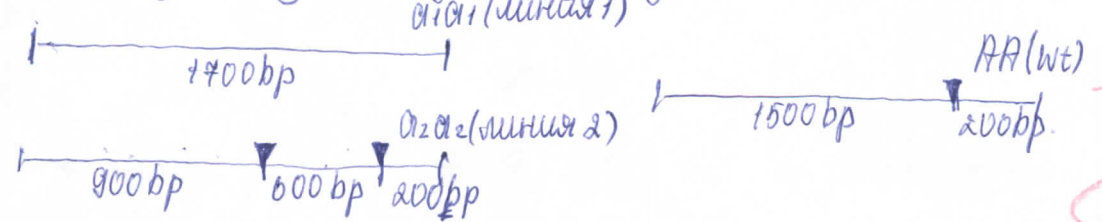 a₁a₁ (линия 1)
1700bp
AA (wt)
1500bp 200bp.
a₂a₂ (линия 2)
900bp 600bp 200bp